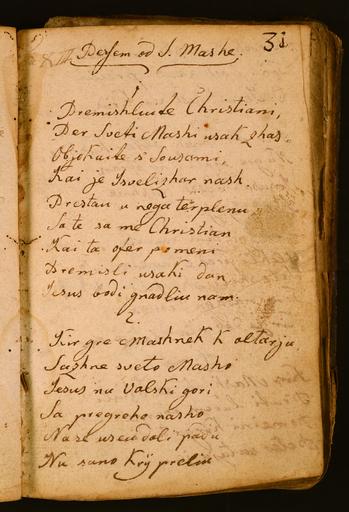 31
XIII. Pessem od S. Mashe.
1
Premishluite Christiani,
Per Sveti Mashi usak zhas,
Objokaite s' sousami,
Kai je Isvelizhar nash.
Prestau u nega terplenu
Sa te sa me Christian
Kai ta ofer pomeni
Premisli usaki dan
Jesus bodi gnadliu nam.
2.
Kir gre Mashnek k altarju
Sazhne sveto Masho
Jesus na Oalski gori
Sa pregreho nasho
Na se useu doli padu
Nu sano kry preliu